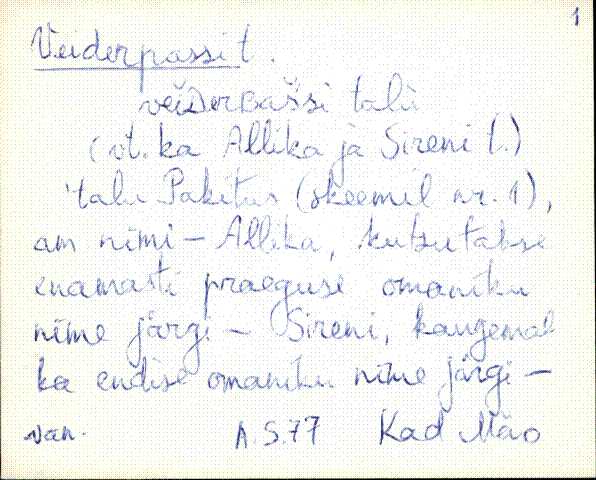 1
Veiderpassi t.
veiDerBašši talu
(vt. ka Allika ja Sireni t.)
talu Pakitus (skeemil nr. 1),
am nimi – Allika, kutsutakse
enamasti praeguse omaniku
nime järgi – Sireni, kaugemal
ka endise omaniku nime järgi –
van. A.S.77 Kad Mäo